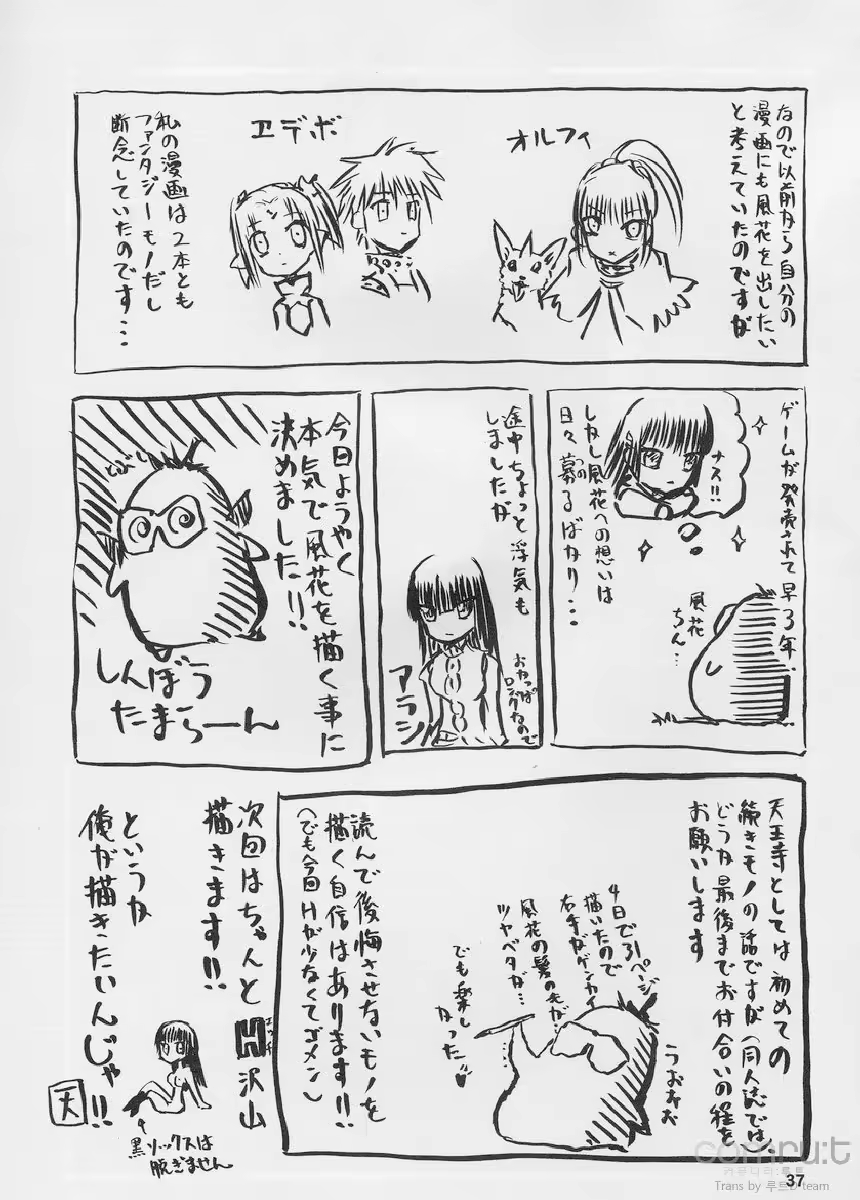 なので以前から自分の
漫画にも風花を出したい
と考えていたのですが
オルフィ
エデボ
私の漫画は2本とも
ファンタジーモノだし
断念していたのです…
ゲームが発売されて早3年…
ナス!!
しかし風花への想いは
日々募るばかり…
つの
風花
ちん…
途中ちょっと浮気も
しましたが
アラシ
おかっぱ
ロングなので
今日ようやく
本気で風花を描く事に
決めました!!
しんぼう
たまらーん
天王寺としては初めての
続きモノの話ですが(同人誌では)
どうか最後までお付合いの程を
お願いします
4日で31ページ
描いたので
右手がゲンカイ
風花の髪の毛が…
ツヤベタが…
でも楽し
かった…♥
うおおお
読んで後悔させないモノを
描く自信はあります!!
(でも今回Hが少なくてゴメン)
次回はちゃんとH沢山
エッチ
描きます!!
というか
俺が描きたいんじゃ!!
黒ソックスは
脱ぎません
天
comru:t
커뮤니티:루트
37
Trans by 루트D team